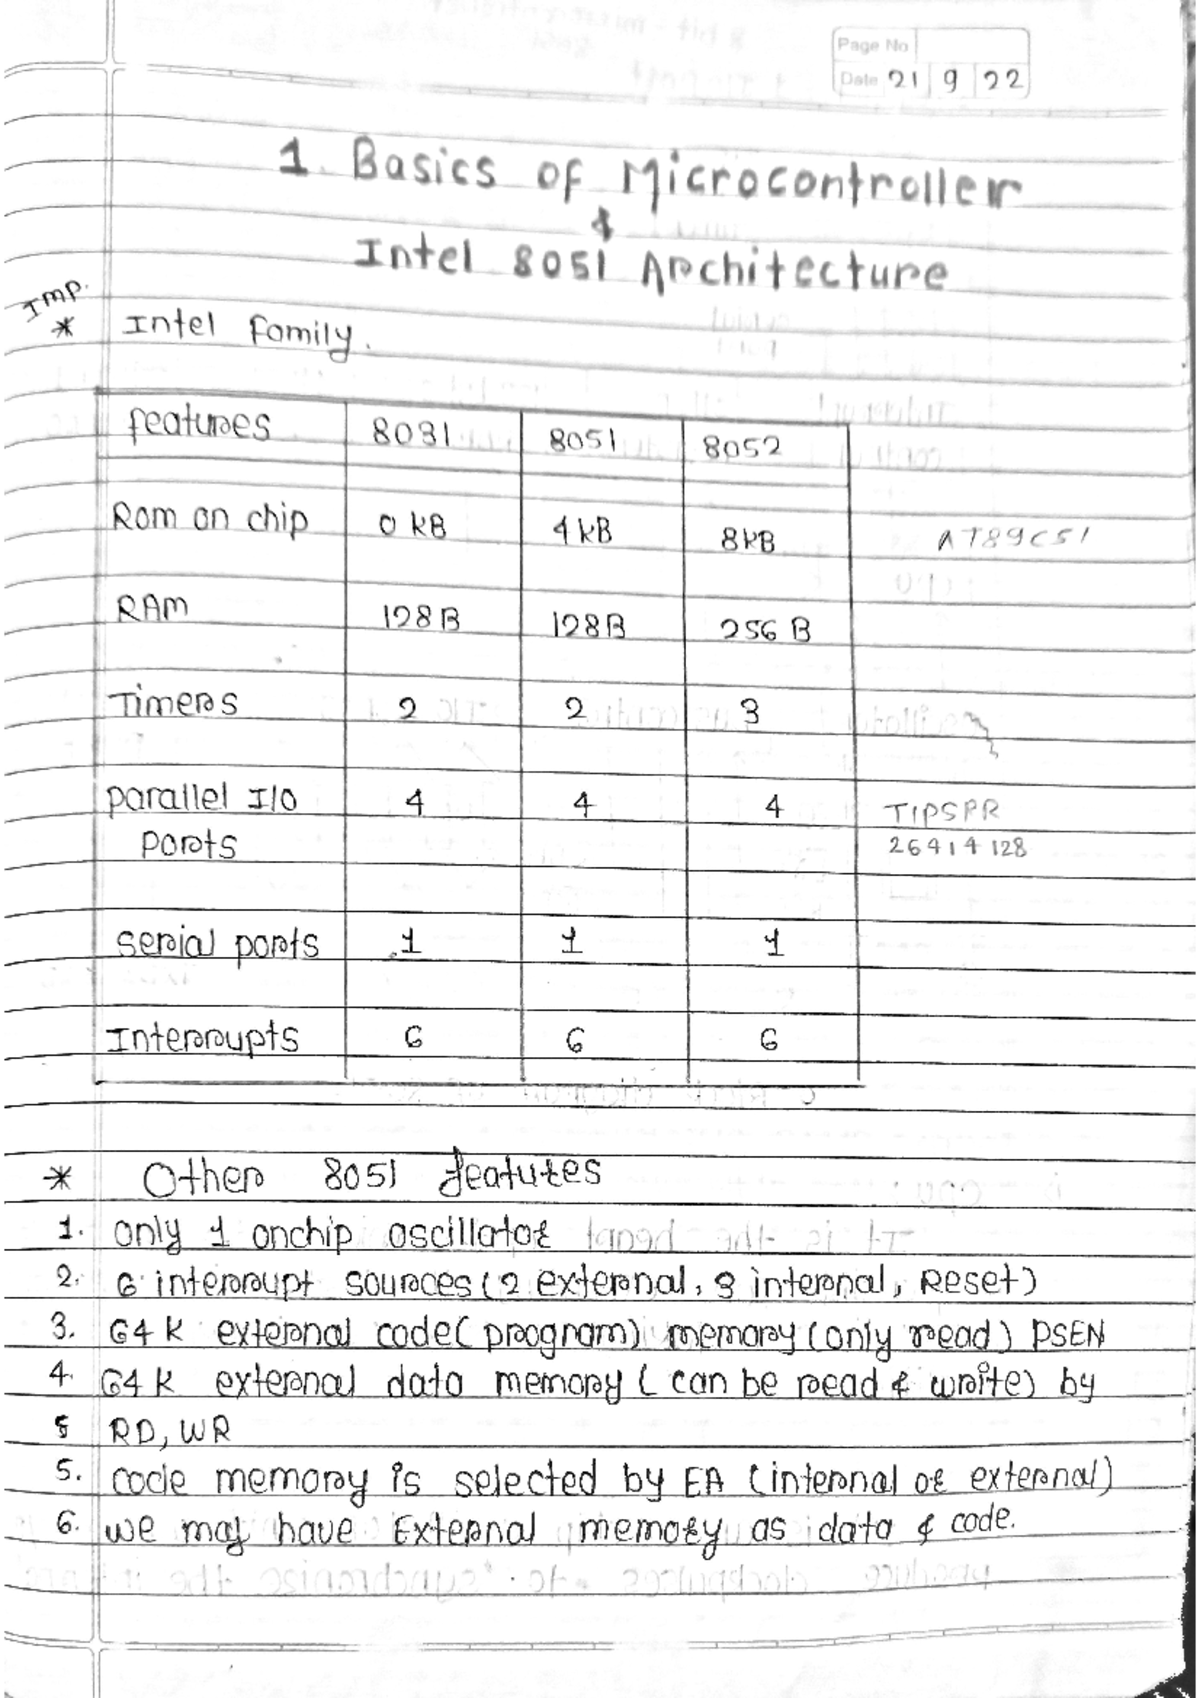 Page No
Date 21 9 22
1. Basics of Microcontroller
&
Intel 8051 Architecture
Imp.
* Intel family.
features 8031 8051 8052
Rom on chip 0 kB 4 kB 8kB AT89C51
RAM 128B 128B 256 B
Timers 2 2 3
parallel I/O 4 4 4 TIPSPR
ports 26414128
serial ports 1 1 1
Interrupts 6 6 6
* Other 8051 features
1. only 1 onchip oscillator
2. 6 interrupt sources (2 external, 3 internal, Reset)
3. 64 K external code (program) memory (only read) PSEN
4. 64 K external data memory ( can be read & write) by
5 RD, WR
5. code memory is selected by EA (internal or external)
6. we may have External memory as data & code.